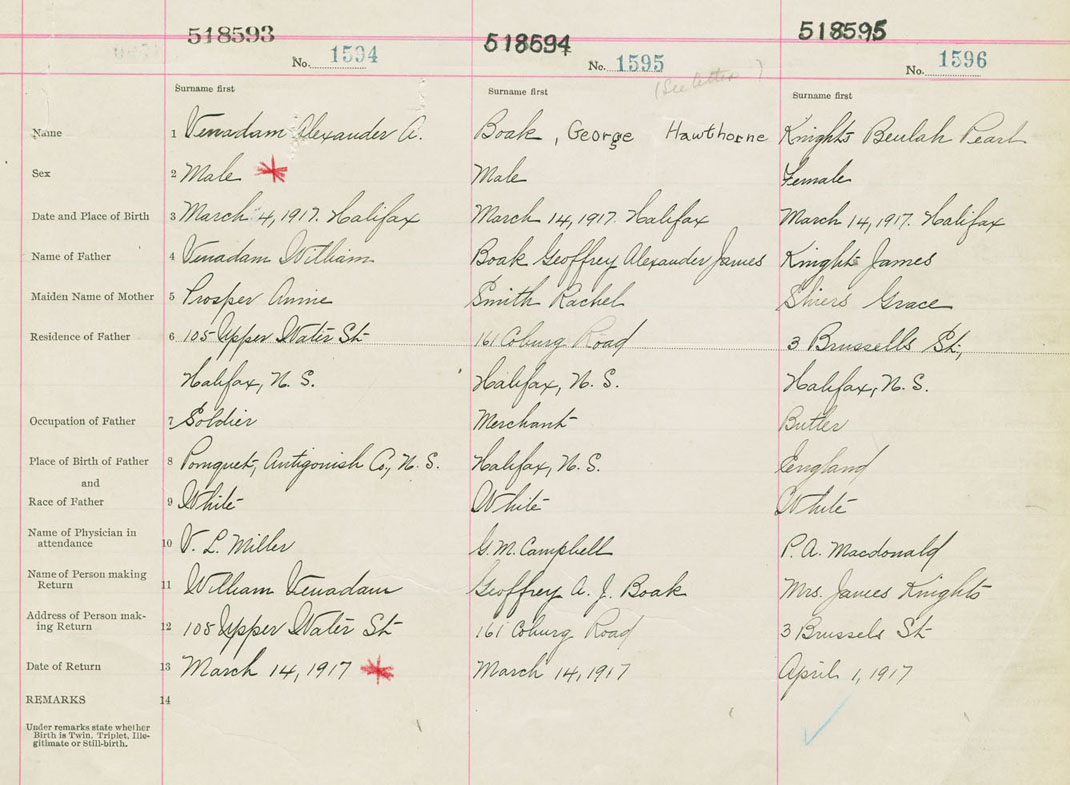 518593
518594
518595
No. 1594
No. 1595
No. 1596
(See letter)
Surname first
Surname first
Surname first
Name 1 Venadam Alexander A. Boak, George Hawthorne Knights Beulah Pearl
Sex 2 Male Male Female
Date and Place of Birth 3 March 4, 1917. Halifax March 14, 1917. Halifax March 14, 1917. Halifax
Name of Father 4 Venadam William Boak Geoffrey Alexander James Knights James
Maiden Name of Mother 5 Prosper Annie Smith Rachel Shiers Grace
Residence of Father 6 105 Upper Water St 161 Coburg Road 3 Brussells St,
Halifax, N. S. Halifax, N. S. Halifax, N. S.
Occupation of Father 7 Soldier Merchant Butler
Place of Birth of Father 8 Pomquet, Antigonish Co, N. S. Halifax, N. S. England
and
Race of Father 9 White White White
Name of Physician in
attendance 10 V. L. Miller G. M. Campbell P. A. Macdonald
Name of Person making
Return 11 William Venadam Geoffrey A. J. Boak Mrs. James Knights
Address of Person mak-
ing Return 12 105 Upper Water St 161 Coburg Road 3 Brussels St
Date of Return 13 March 14, 1917 March 14, 1917 April 1, 1917
REMARKS 14
Under remarks state whether
Birth is Twin, Triplet, Ille-
gitimate or Still-birth.